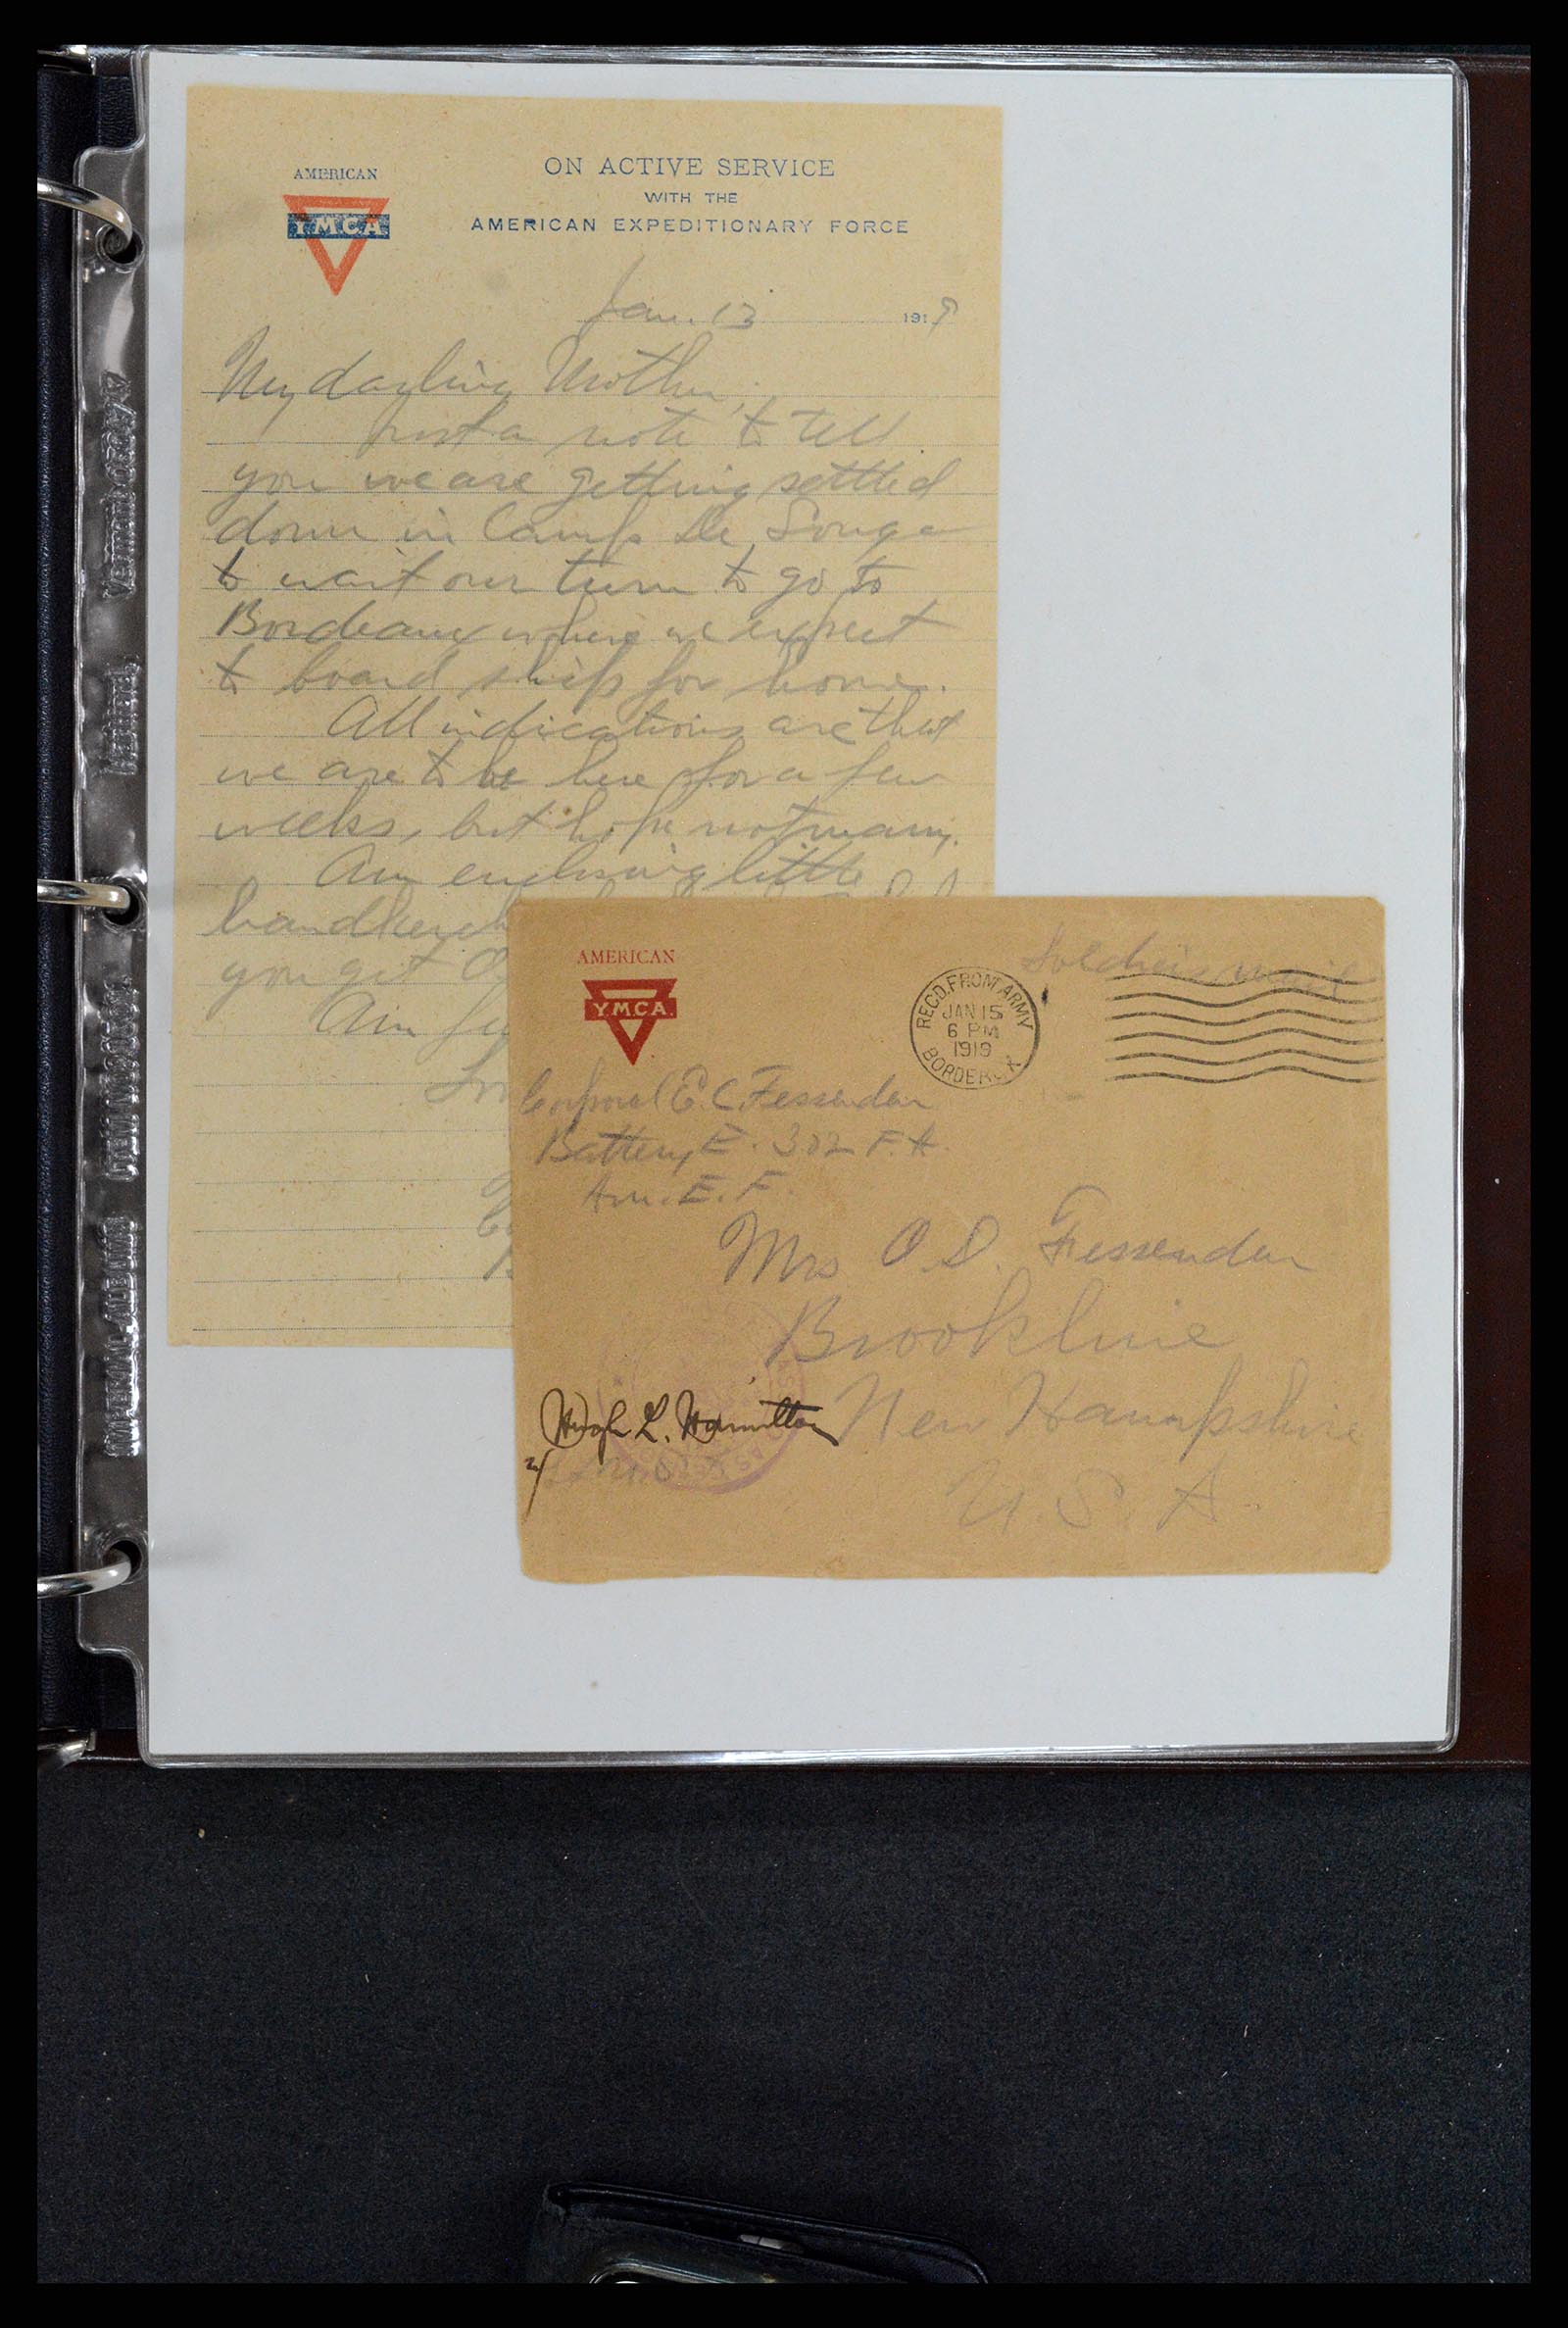 AMERICAN
YMCA
ON ACTIVE SERVICE
WITH THE
AMERICAN EXPEDITIONARY FORCE
Jan. 13 1919
My darling Mother,
Just a note to tell
you we are getting settled
down in Camp De Souge
to wait our turn to go to
Bordeaux where we expect
to board ship for home.
All indications are that
we are to be here for a few
weeks, but hope not many.
Am enclosing little
handkerch
you get
Am
AMERICAN
YMCA
Soldiers mail
RECD. FROM ARMY
JAN 15
6 PM
1919
Corporal E. C. Fessenden
Battery E. 302 F. A.
Am. E. F.
Mrs O. D. Fessenden
Brookline
New Hampshire
U. S. A.
Hugh L. Hamilton